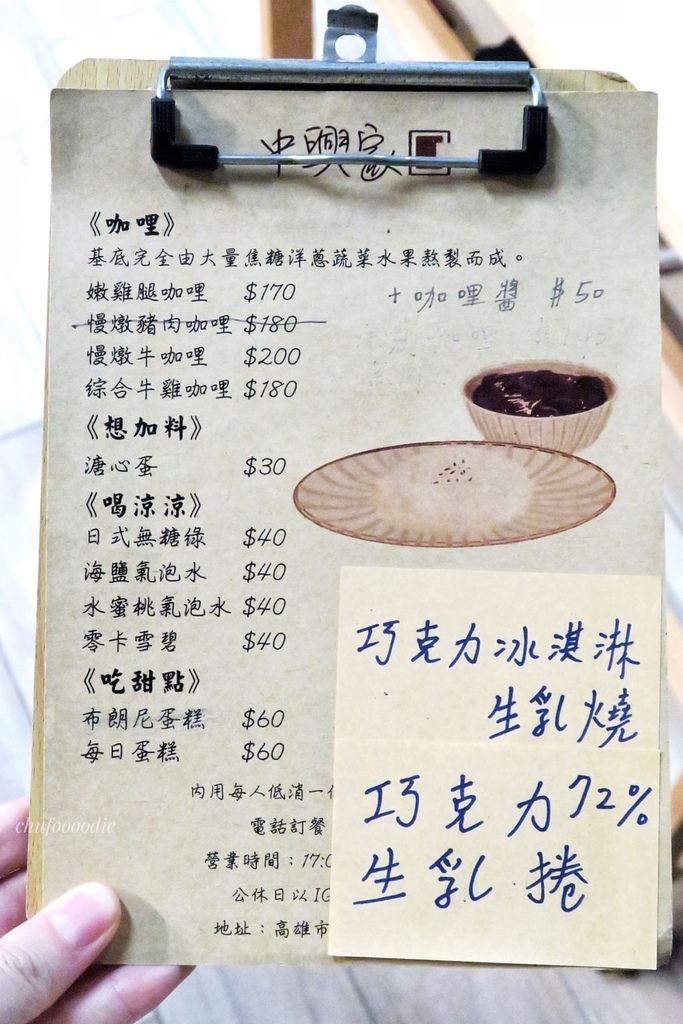 中興家
《咖哩》
基底完全由大量焦糖洋蔥蔬菜水果熬製而成。
嫩雞腿咖哩 $170
+咖哩醬 $50
慢燉豬肉咖哩 $180
慢燉牛咖哩 $200
綜合牛雞咖哩 $180
《想加料》
溏心蛋 $30
《喝涼涼》
日式無糖綠 $40
海鹽氣泡水 $40
水蜜桃氣泡水 $40
零卡雪碧 $40
《吃甜點》
布朗尼蛋糕 $60
每日蛋糕 $60
內用每人低消一
電話訂餐
營業時間：17:0
公休日以IG
地址：高雄市
巧克力冰淇淋
生乳燒
巧克力72%
生乳捲
chufoooodie